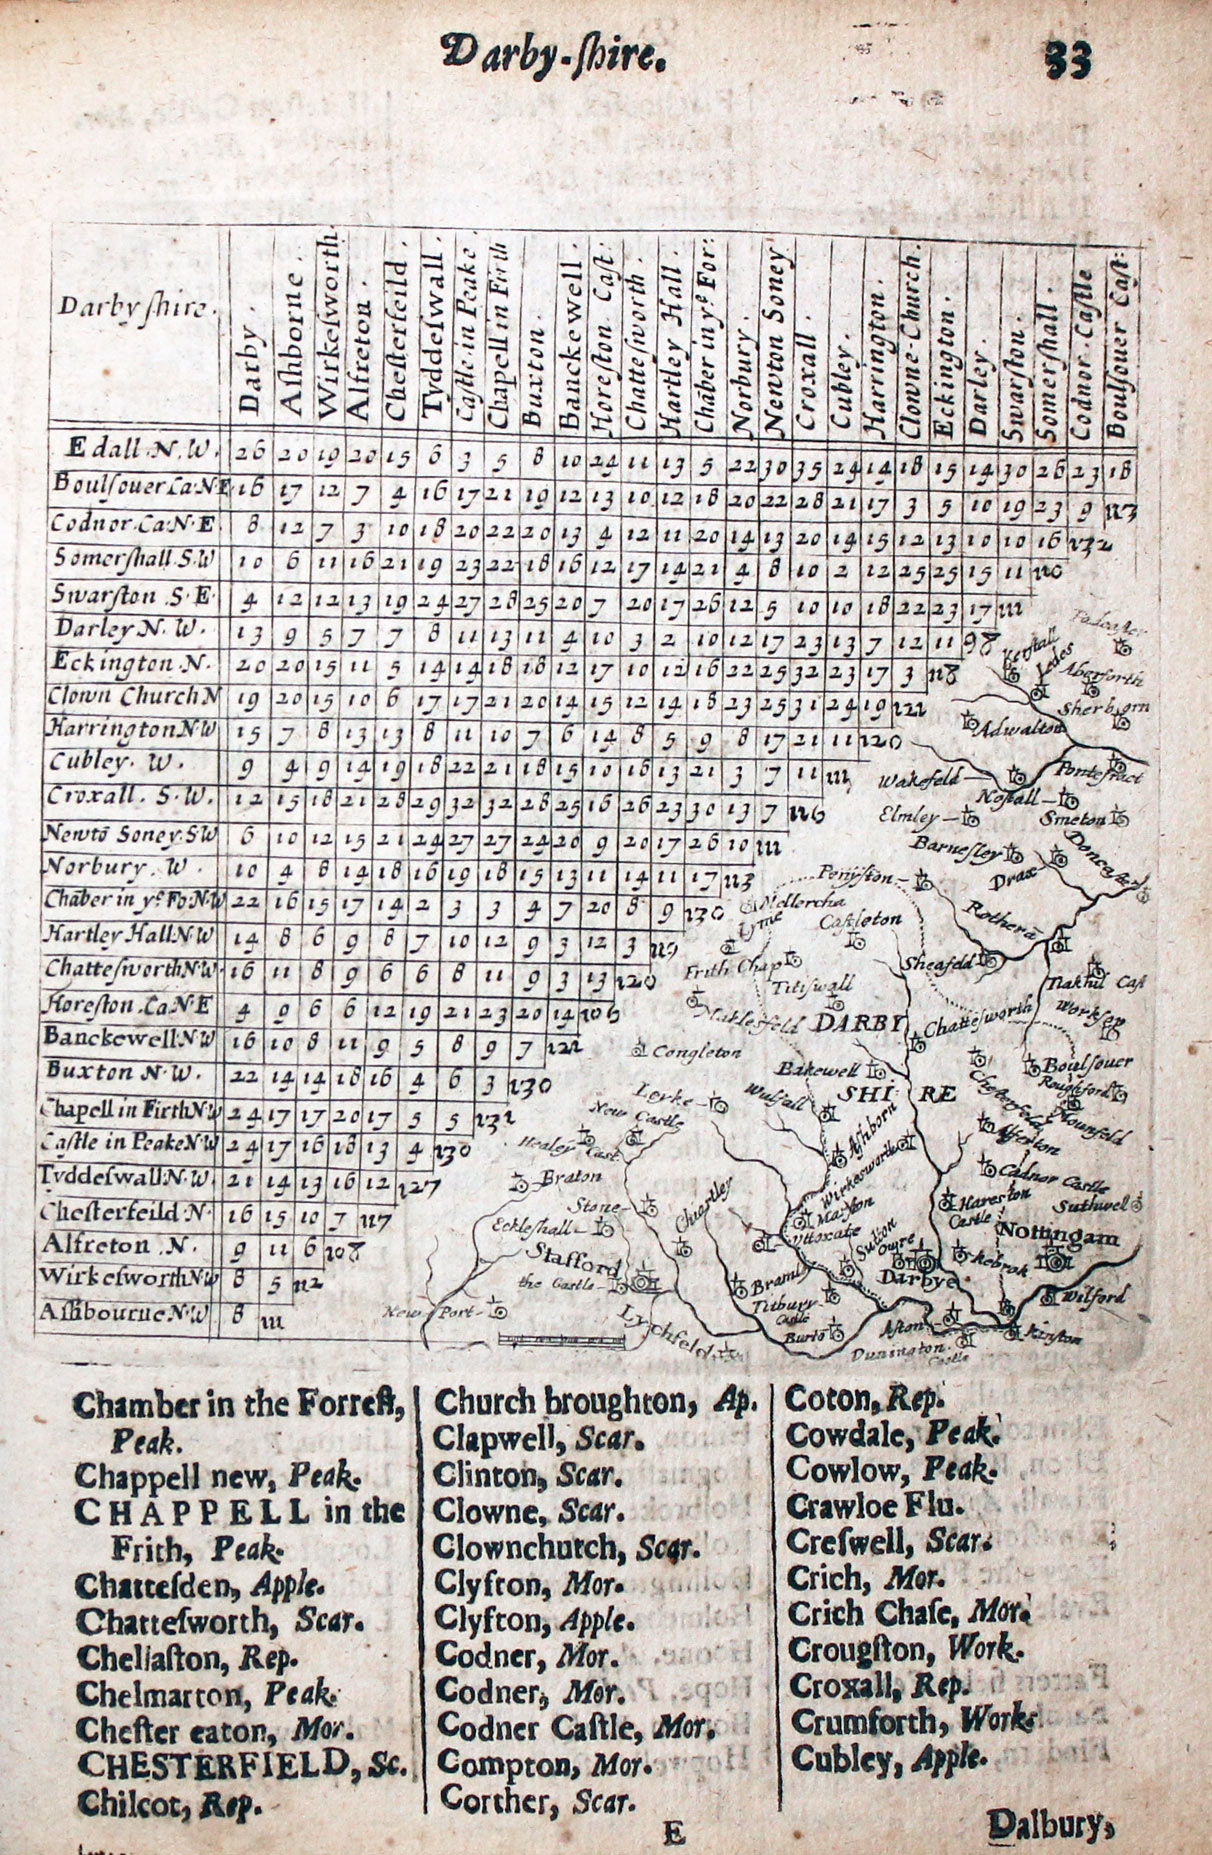 Darby-ſhire.
33
Darby ſhire.
Darby.
Aſhborne.
Wirkeſworth.
Alfreton.
Cheſterfeild.
Tyddeſwall.
Caſtle in Peake.
Chapell in Firth
Buxton.
Banckewell.
Horeſton Caſt:
Chatteſworth.
Hartley Hall.
Chāber in yͤ For:
Norbury.
Newton Soney
Croxall.
Cubley.
Harrington.
Clowne-Church.
Eckington.
Darley.
Swarſton.
Somerſhall.
Codnor Caſtle
Boulſouer Caſt:
Edall N. W. 26 20 19 20 15 6 3 5 8 10 24 11 13 5 22 30 35 24 14 18 15 14 30 26 23 18
Boulſouer Ca N E 16 17 12 7 4 16 17 21 19 12 13 10 12 18 20 22 28 21 17 3 5 10 19 23 9 113
Codnor Ca N E 8 12 7 3 10 18 20 22 20 13 4 12 11 20 14 13 20 14 15 12 13 10 10 16 132
Somerſhall S W 10 6 11 16 21 19 23 22 18 16 12 17 14 21 4 8 10 2 12 25 25 15 11 110
Swarſton S. E. 4 12 12 13 19 24 27 28 25 20 7 20 17 26 12 5 10 10 18 22 23 17 111
Darley N. W. 13 9 5 7 7 8 11 13 11 4 10 3 2 10 12 17 23 13 7 12 11 98
Eckington N. 20 20 15 11 5 14 14 18 18 12 17 10 12 16 22 25 32 23 17 3 118
Clown Church N 19 20 15 10 6 17 17 21 20 14 15 12 14 18 23 25 31 24 19 121
Harrington N W 15 7 8 13 13 8 11 10 7 6 14 8 5 9 8 17 21 11 120
Cubley. W. 9 4 9 14 19 18 22 21 18 15 10 16 13 21 3 7 11 111
Croxall. S. W. 12 15 18 21 28 29 32 32 28 25 16 26 23 30 13 7 116
Newtō Soney S W 6 10 12 15 21 24 27 27 24 20 9 20 17 26 10 111
Norbury. W. 10 4 8 14 18 16 19 18 15 13 11 14 11 17 113
Chāber in yͤ Fo N W 22 16 15 17 14 2 3 3 4 7 20 8 9 130
Hartley Hall N W 14 8 6 9 8 7 10 12 9 3 12 3 119
Chatteſworth N W 16 11 8 9 6 6 8 11 9 3 13 120
Horeſton. Ca N E 4 9 6 6 12 19 21 23 20 14 106
Banckewell N W 16 10 8 11 9 5 8 9 7 121
Buxton N. W. 22 14 14 18 16 4 6 3 130
Chapell in Firth N W 24 17 17 20 17 5 5 131
Caſtle in Peake N W 24 17 16 18 13 4 130
Tyddeſwall N. W. 21 14 13 16 12 127
Cheſterfeild N. 16 15 10 7 117
Alfreton. N. 9 11 6 108
Wirkeſworth N W 8 5 112
Aſhbourne N W 8 111
Ledes
Aberforth
Sherborn
Adwalton
Wakefeld
Pontefract
Noſtall
Elmley
Smeton
Barneſley
Drax
Doncaſter
Penyſton
Mellercha
Lyme
Caſtleton
Rotherā
Frith Chap
Sheafeld
Titiſwall
Tiakhil Caſt
Workſop
Maklesfeld
DARBY
SHIRE
Chatteſworth
Congleton
Bakewell
Boulſouer
Roughford
Cheſterfeld
Mounſfeld
Leeke
Wulfall
New Caſtle
Aſhborn
Alfenton
Healey Caſt
Wirkesworth
Codnor Caſtle
Braton
Hareſton
Caſtle
Suthwell
Stone
Chartley
Marſton
Eckleſhall
Vttoxate
Nottingam
Stafford
the Caſtle
Sutton
Darbye
Bramly
Titbury
Caſtle
Wilford
New Port
Lychfeld
Burtō
Aſton
Dunington
Caſtle
Kinſton
Chamber in the Forreſt,
Peak.
Chappell new, Peak.
CHAPPELL in the
Frith, Peak.
Chatteſden, Apple.
Chatteſworth, Scar.
Chellaſton, Rep.
Chelmarton, Peak.
Cheſter eaton, Mor.
CHESTERFIELD, Sc.
Chilcot, Rep.
Church broughton, Ap.
Clapwell, Scar.
Clinton, Scar.
Clowne, Scar.
Clownchutch, Scar.
Clyfton, Mor.
Clyfton, Apple.
Codner, Mor.
Codner, Mor.
Codner Caſtle, Mor.
Compton, Mor.
Corther, Scar.
Coton, Rep.
Cowdale, Peak.
Cowlow, Peak.
Crawloe Flu.
Creſwell, Scar.
Crich, Mor.
Crich Chaſe, Mor.
Crougſton, Work.
Croxall, Rep.
Crumforth, Work.
Cubley, Apple.
E
Dalbury,